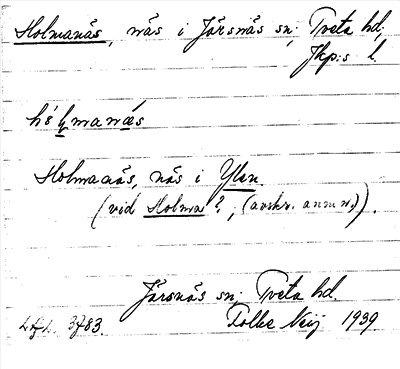 Holmanäs, näs i Järsnäs sn; Tveta hd,
Jkp:s l.
Holmanäs, näs i Ylen.
(vid Holma?, (avskr. anm.)).
Järsnäs sn; Tveta hd.
3783. Folke Neij 1939